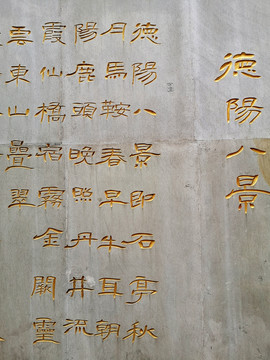 徳陽八景
徳陽八景即石亭秋
月馬鞍春早牛耳朝
陽鹿頭晚照丹井流
霞仙橋宿霧金闕靈
雲東山疊翠